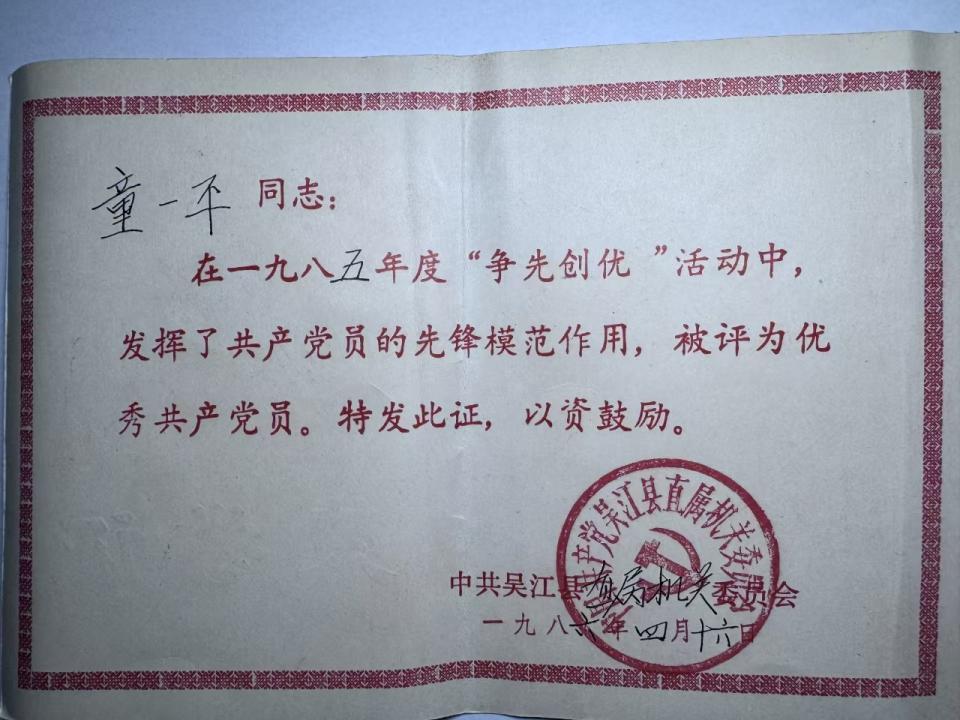 童一平 同志：
在一九八五年度“争先创优”活动中，
发挥了共产党员的先锋模范作用，被评为优
秀共产党员。特发此证，以资鼓励。
中共吴江县直属机关委员会
一九八六年四月十六日
产党吴江县直属机关委员